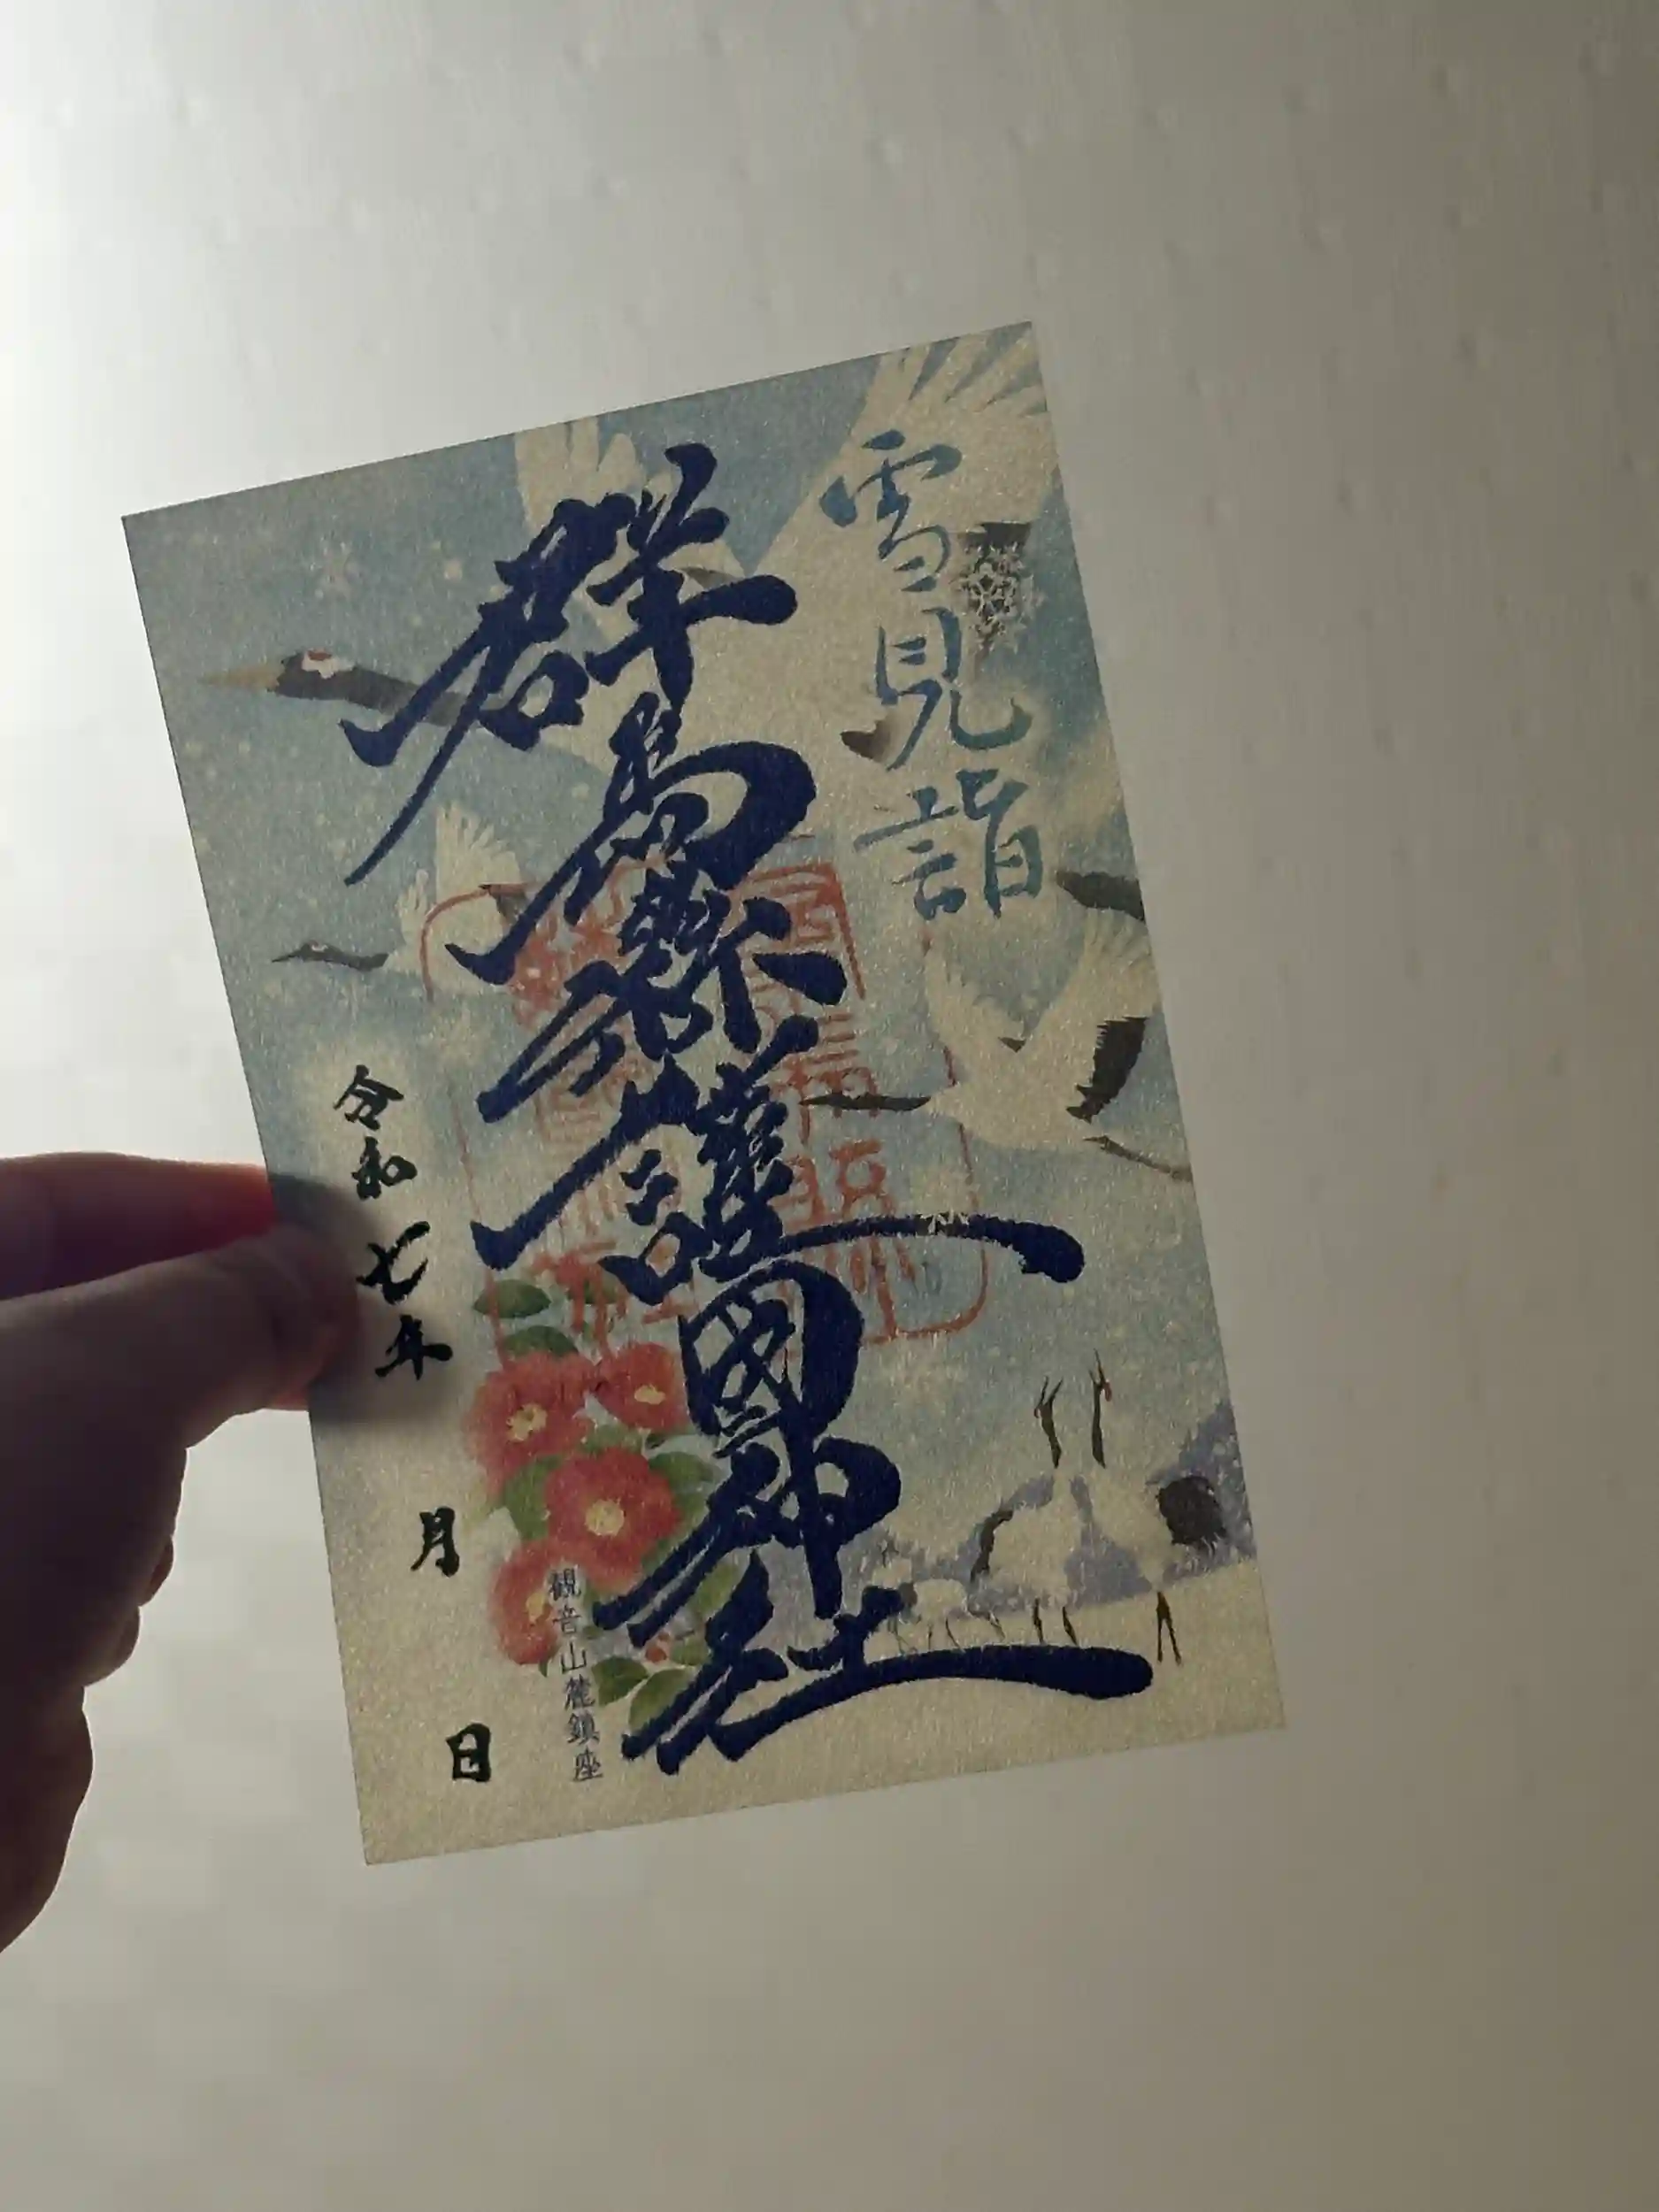 雪見詣
群馬縣護國神社
観音山麓鎮座
令和七年 月 日